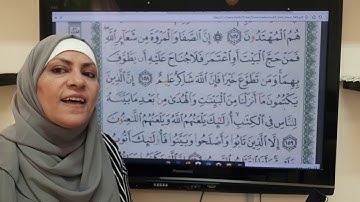 هُمُ الْمُهْتَدُونَ ١٥٧ إِنَّ الصَّفَا وَالْمَرْوَةَ مِن شَعَائِرِ اللَّهِ
فَمَنْ حَجَّ الْبَيْتَ أَوِ اعْتَمَرَ فَلَا جُنَاحَ عَلَيْهِ أَن يَطَّوَّفَ
بِهِمَا وَمَن تَطَوَّعَ خَيْرًا فَإِنَّ اللَّهَ شَاكِرٌ عَلِيمٌ ١٥٨ إِنَّ الَّذِينَ
يَكْتُمُونَ مَا أَنزَلْنَا مِنَ الْبَيِّنَاتِ وَالْهُدَى مِن بَعْدِ مَا بَيَّنَّاهُ
لِلنَّاسِ فِي الْكِتَابِ أُولَئِكَ يَلْعَنُهُمُ اللَّهُ وَيَلْعَنُهُمُ اللَّاعِنُونَ
١٥٩ إِلَّا الَّذِينَ تَابُوا وَأَصْلَحُوا وَبَيَّنُوا فَأُولَئِكَ أَتُوبُ
Panasonic